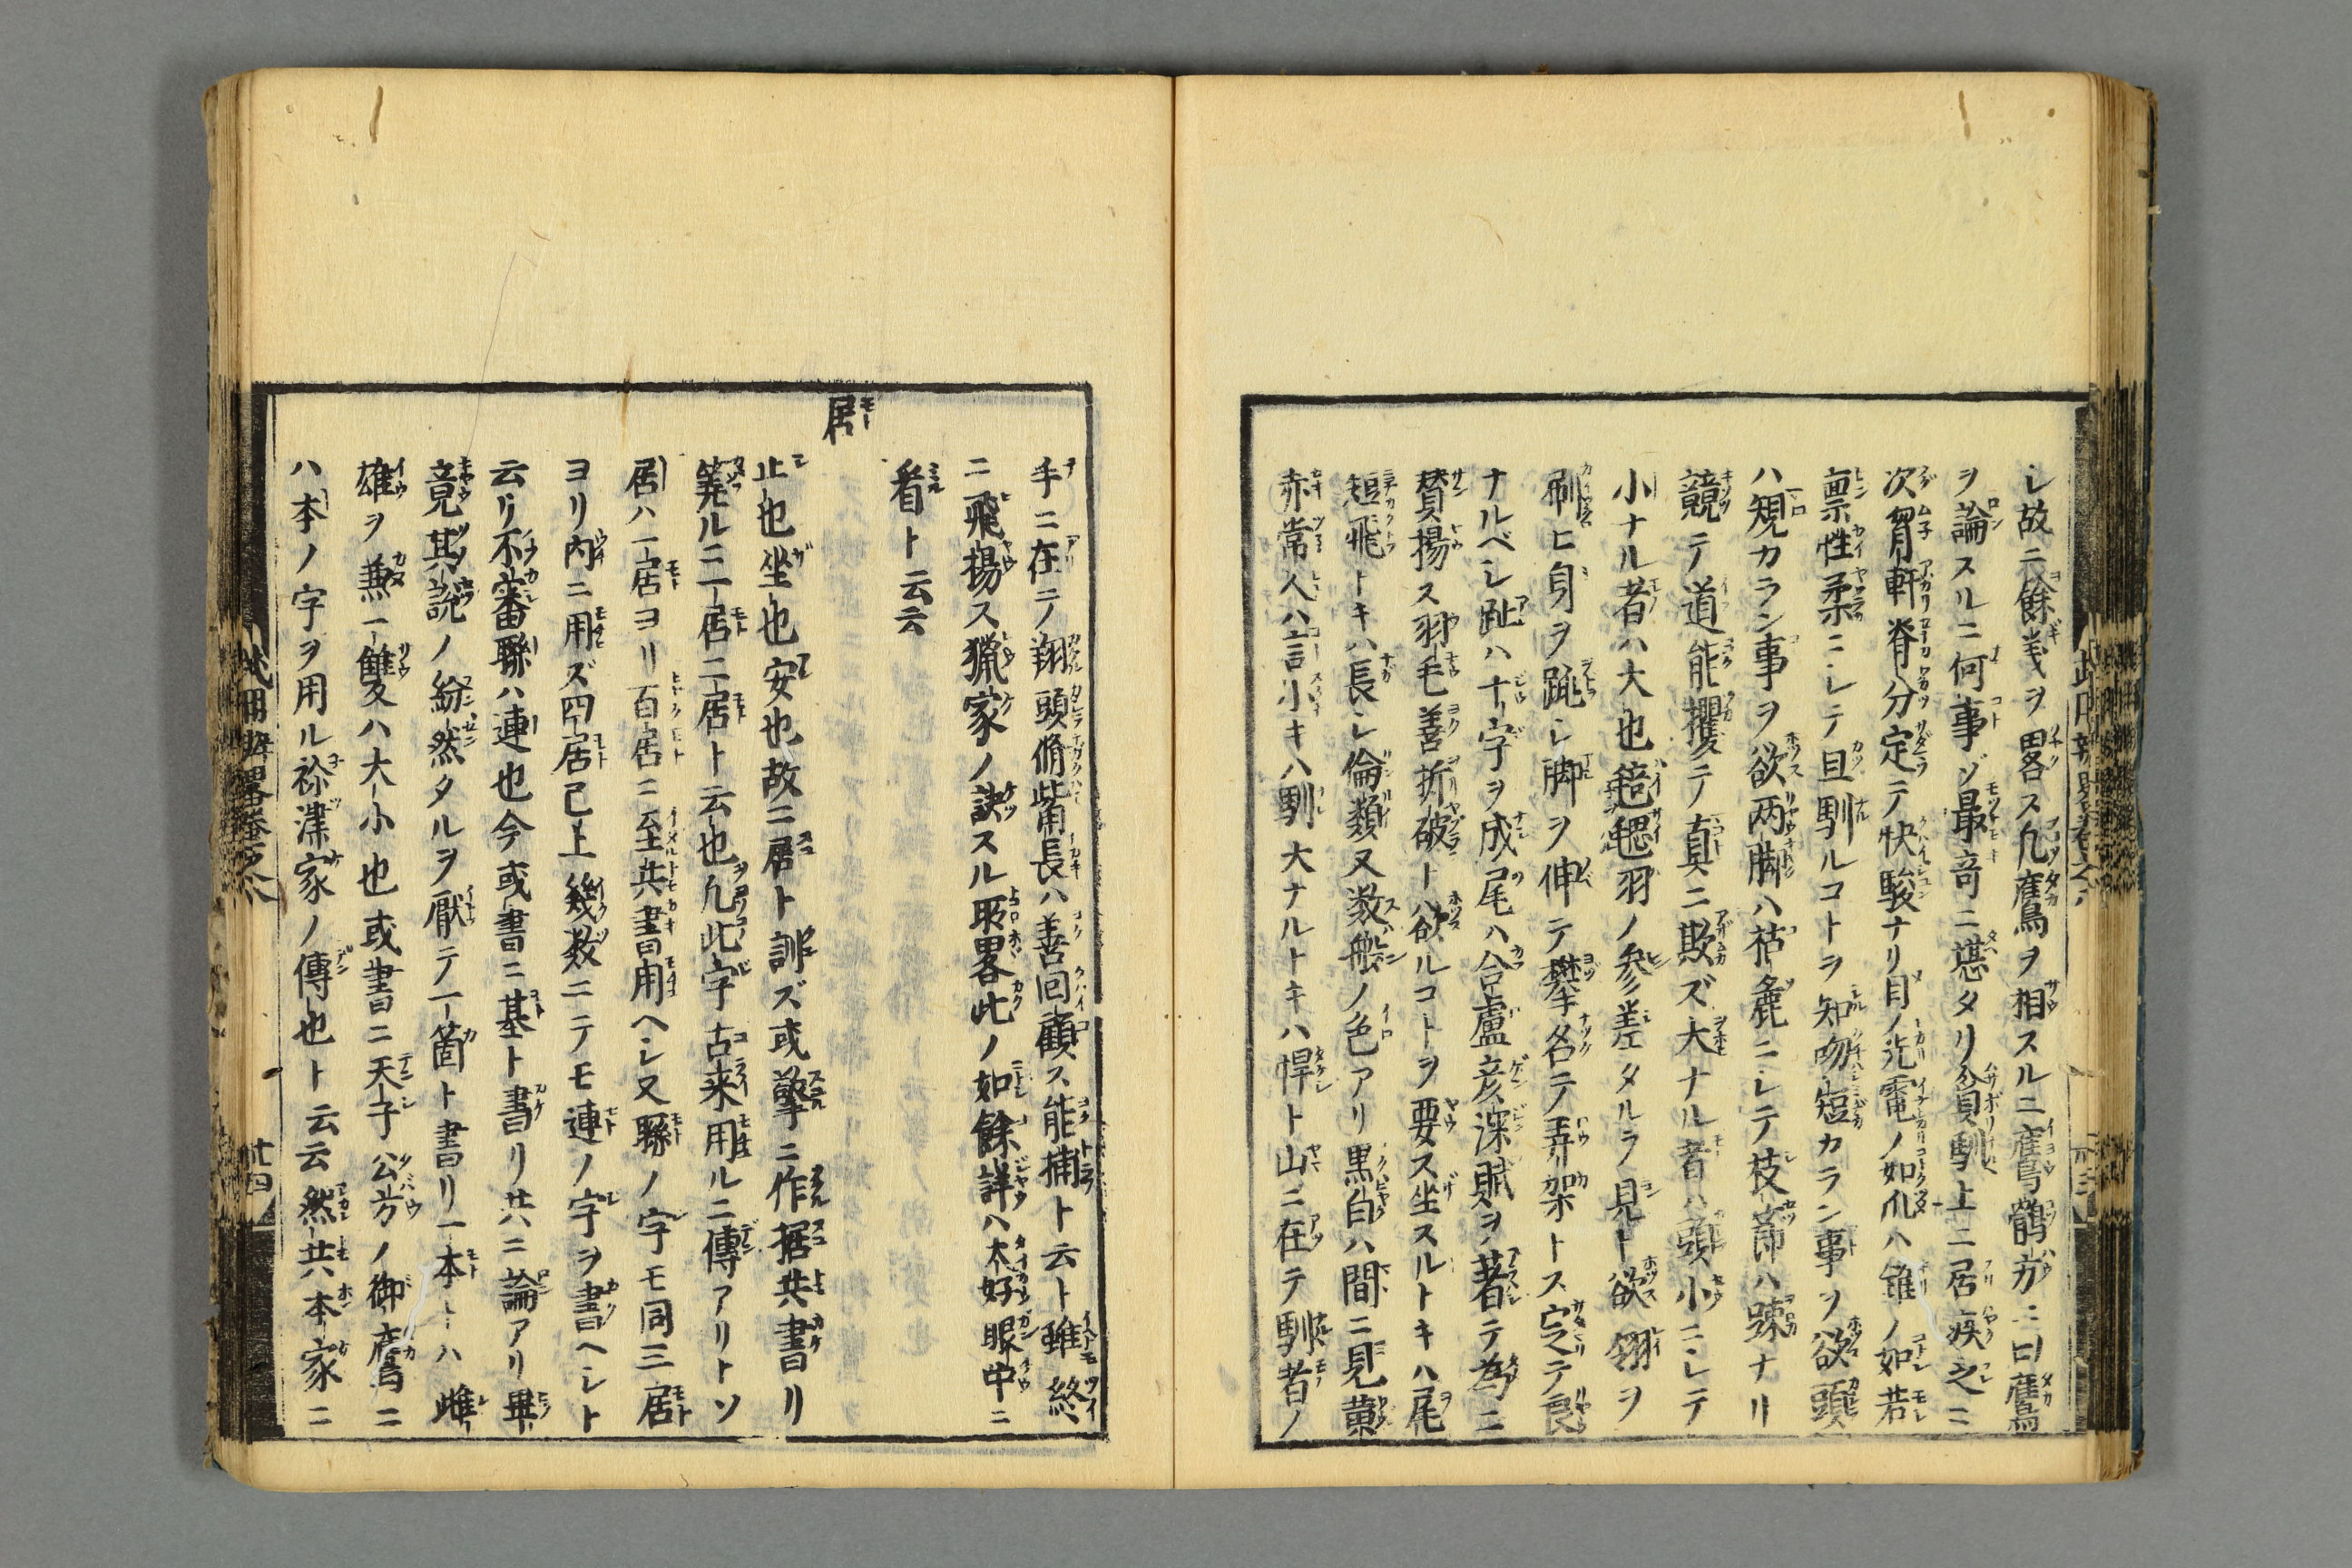 シ故ニ餘義ヲ畧ス凢鷹ヲ相スルニ鷹鶻方ニ曰鷹
ヲ論スルニ何事ゾ最奇ニ堪タリ貪馴上ニ居疾之ニ
次胷軒脊分定テ快駿ナリ目ノ光電ノ如爪ハ錐ノ如若
禀性柔ニシテ且馴ルコトヲ知吻短カラン事ヲ欲頭
ハ規カラン事ヲ欲两脚ハ枯麁ニシテ枝節ハ踈ナリ
競テ道能攫テ真ニ欺ズ大ナル者ハ頭小ニシテ
小ナル者ハ大也毰毸羽ノ參差タルヲ見ト欲翎ヲ
刷ヒ身ヲ跳シ脚ヲ伸テ攀名テ弄架トス定テ良
ナルベシ趾ハ十字ヲ成尾ハ合盧彦深賦ヲ著テ為ニ
賛揚ス羽毛善折破ト欲ルコトヲ要ス坐スルトキハ尾
短飛トキハ長シ倫類又数般ノ色アリ黒白ハ間ニ見黄
赤常人ハ言小キハ馴大ナルトキハ悍ト山ニ在テ馴者ノ
手ニ在テ翔頭脩觜長ハ善回顧ス能捕ト云ト雖終
ニ飛揚ス獵家ノ訣スル㕝畧此ノ如餘詳ハ太好眼中ニ
看ト云云
居
止也坐也安也故ニ居ト訓ズ或擎ニ作据共書リ
筭ルニ一居二居ト云也凢此字古来用ルニ傳アリトソ
居ハ一居ヨリ百居ニ至共書用ヘシ又聯ノ字モ同三居
ヨリ内ニ用ズ四居已上幾数ニテモ連ノ字ヲ書ヘシト
云リ不審聯ハ連也今或書ニ基ト書リ共ニ論アリ畢
竟其説ノ紛然タルヲ厭テ一箇ト書リ一本ニハ雌
雄ヲ兼一雙ハ大小也或書ニ天子公方ノ御鷹ニ
ハ本ノ字ヲ用ル祢津家ノ傳也ト云云然共本家ニ